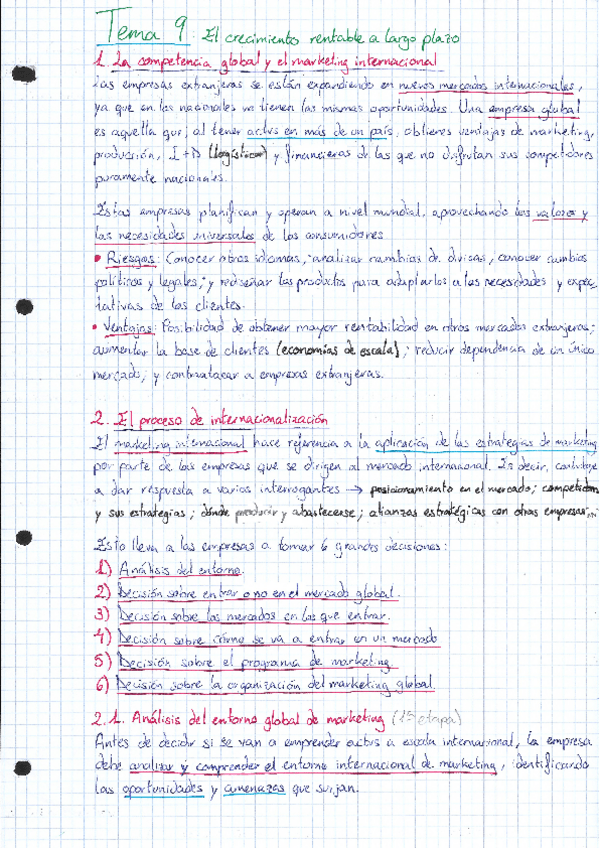 Tema 9: El crecimiento rentable a largo plazo
1. La competencia global y el marketing internacional
Las empresas extranjeras se están expandiendo en nuevos mercados internacionales,
ya que en los nacionales no tienen las mismas oportunidades. Una empresa global
es aquella que, al tener actvs en más de un país, obtienes ventajas de marketing,
producción, I+D (logística) y financieras de las que no disfrutan sus competidores
puramente nacionales.
Estas empresas planifican y operan a nivel mundial, aprovechando los valores y
las necesidades universales de los consumidores
• Riesgos: Conocer otros idiomas; analizar cambios de divisas, conocer cambios
políticos y legales; y rediseñar los productos para adaptarlos a las necesidades y expec
tativas de los clientes.
• Ventajas: Posibilidad de obtener mayor rentabilidad en otros mercados extranjeros;
aumentar la base de clientes (economías de escala); reducir dependencia de un único
mercado; y contraatacar a empresas extranjeras.
2. El proceso de internacionalización
El marketing internacional hace referencia a la aplicación de las estrategias de marketing
por parte de las empresas que se dirigen al mercado internacional. Es decir, contribuye
a dar respuesta a varios interrogantes → posicionamiento en el mercado; competidores
y sus estrategias; dónde producir y abastecerse; alianzas estratégicas con otras empresas;
Esto lleva a las empresas a tomar 6 grandes decisiones:
1) Análisis del entorno.
2) Decisión sobre entrar o no en el mercado global.
3) Decisión sobre los mercados en los que entrar.
4) Decisión sobre cómo se va a entrar en un mercado
5) Decisión sobre el programa de marketing.
6) Decisión sobre la organización del marketing global.
2.1. Análisis del entorno global de marketing (1ª etapa)
Antes de decidir si se van a emprender actvs a escala internacional, la empresa
debe analizar y comprender el entorno internacional de marketing, identificando
las oportunidades y amenazas que surjan.